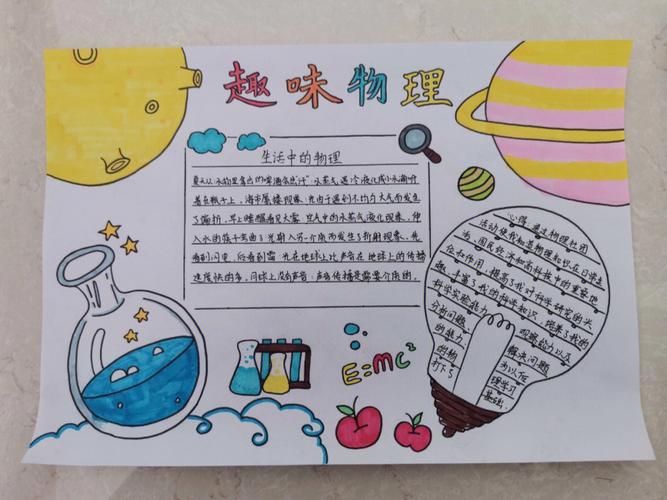 趣味物理
生活中的物理
夏天从冰柜里拿出的啤酒会出"汗"水蒸气遇冷液化成小水滴附
着在瓶子上,海市蜃楼现象,光由于遇到不均匀大气而发生
了偏折,早上睡醒看见大雾空气中的水蒸气液化现象,伸
入水的筷子弯曲了光射入另一个角而发生了折射现象,先
看到闪电,后看到雷光在地球上比声音在地球上的传播
速度快的多,月球上没有声音:声音传播是需要介质的.
心得:通过物理社团
活动使我知道物理知识在日常生
活、国民经济和高科技中的重要地
位和作用,提高了我对科学研究的兴
趣,丰富了我的科学知识,培养了我的
科学实验能力
观察能力以及
分析问题、
解决问题
的能力,
为以后
的物
理学习
打下了
基础.
E=mc²